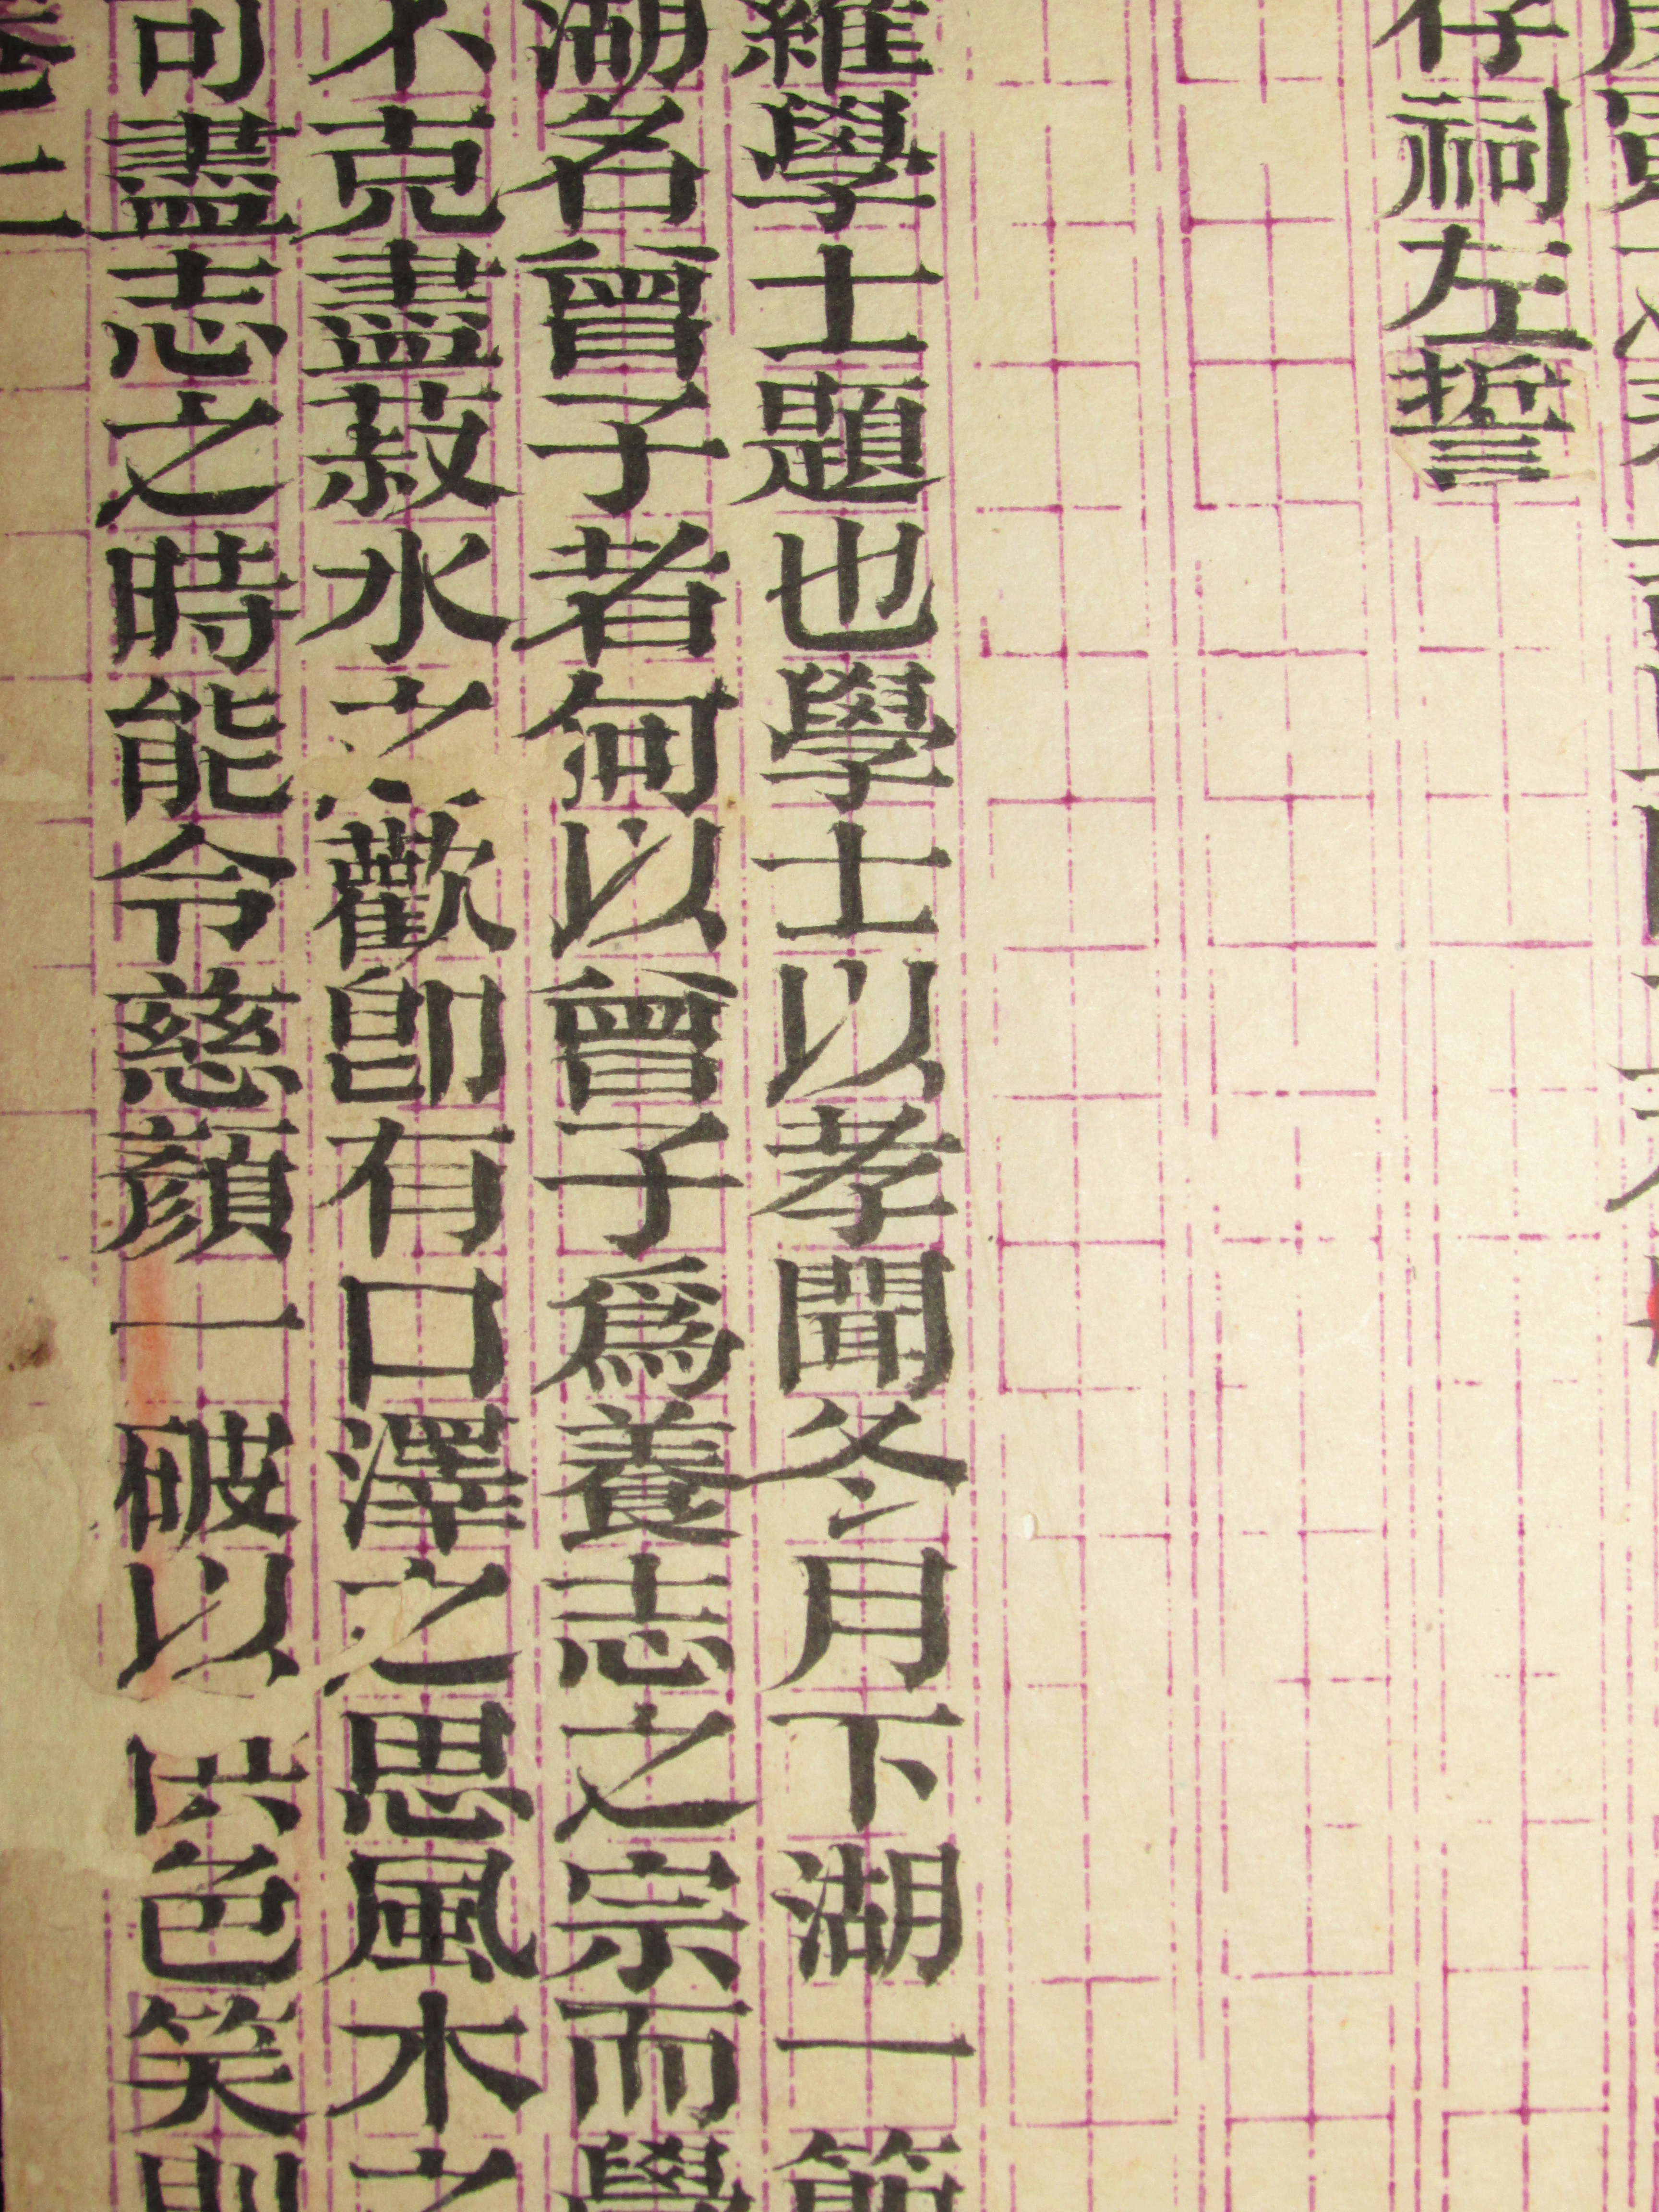 存祠左誓
維學士題也學士以孝聞冬月下湖一
湖名曾子者何以曾子爲養志之宗而學
不克盡菽水之歡卽有口澤之思風木之
可盡志之時能令慈顏一破以供色笑則
卷二